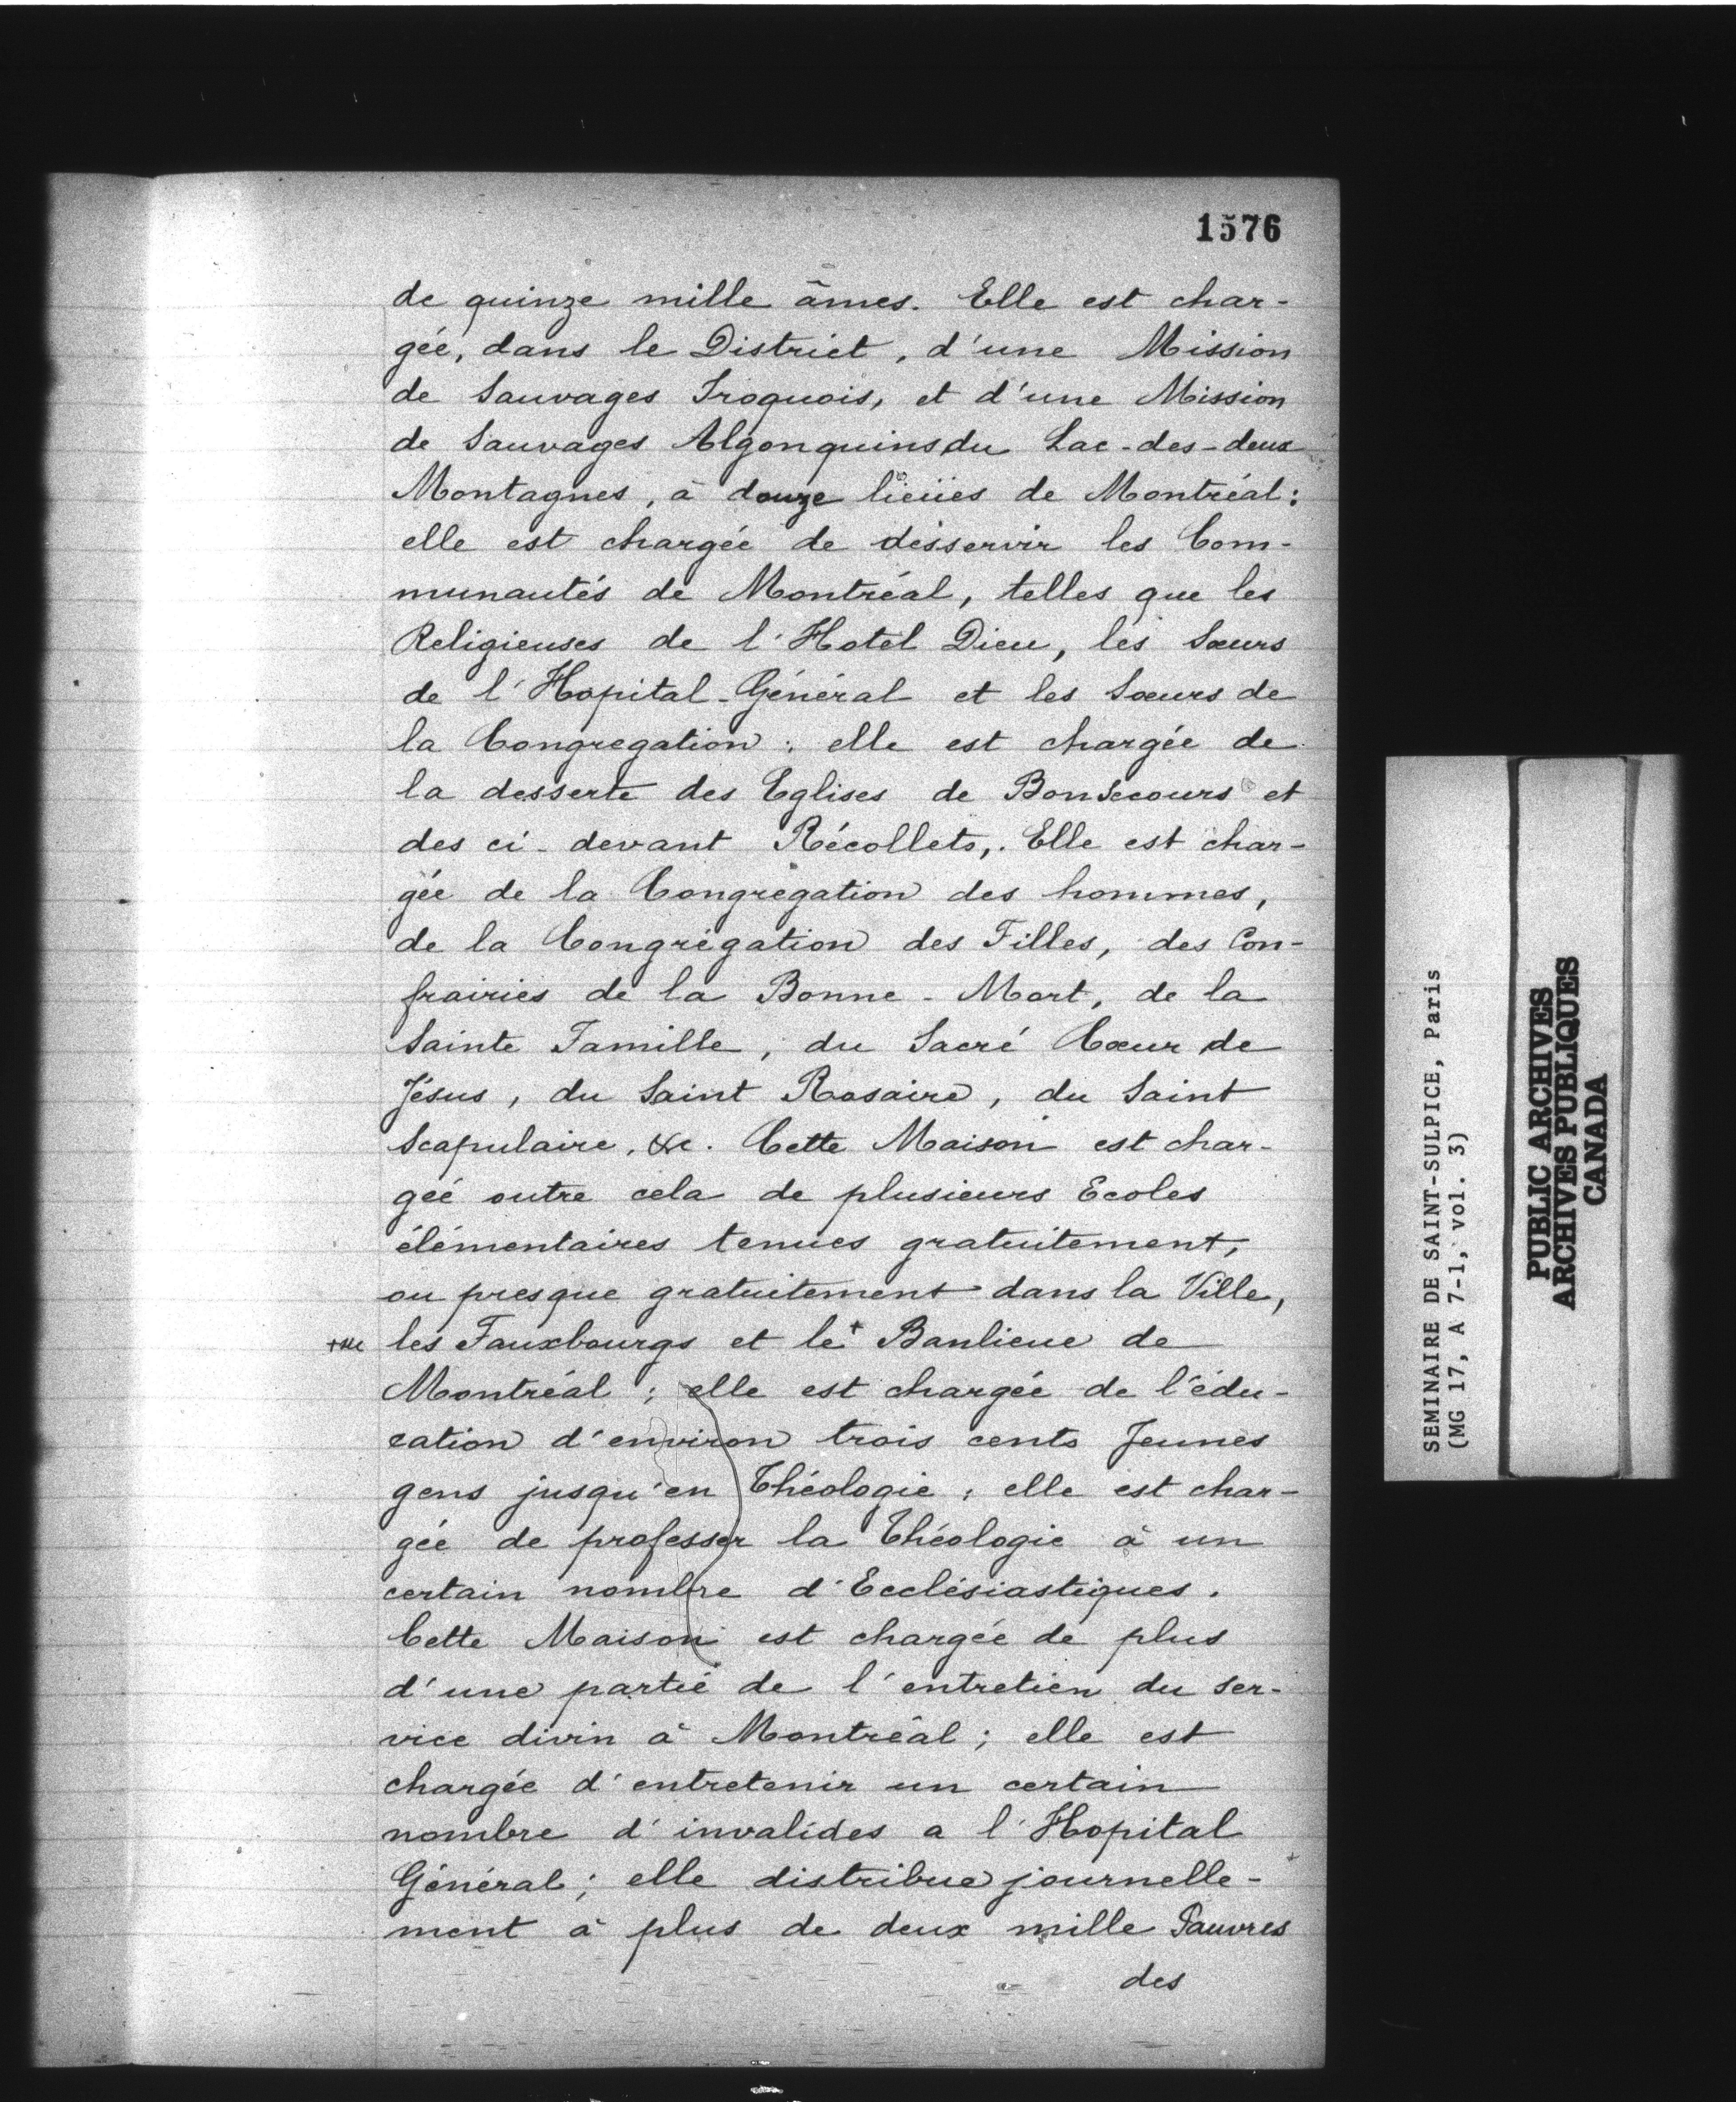 1576
de quinze mille âmes. Elle est char-
gée, dans le District, d'une Mission
de Sauvages Iroquois, et d'une Mission
de Sauvages Algonquins du Lac-des-deux
Montagnes, à douze lieües de Montréal:
elle est chargée de desservir les Com-
munautés de Montréal, telles que les
Religieuses de l'Hotel Dieu, les Sœurs
de l'Hopital-Général et les Sœurs de
la Congregation: elle est chargée de
la desserte des Eglises de BonSecours et
des ci-devant Récollets,. Elle est char-
gée de la Congregation des hommes,
de la Congrégation des Filles, des Con-
frairies de la Bonne-Mort, de la
Sainte Famille, du Sacré Cœur de
Jésus, du Saint Rosaire, du Saint
Scapulaire, &c. Cette Maison est char-
geé outre cela de plusieurs Ecoles
élémentaires tenues gratuitement,
ou presque gratuitement dans la Ville,
les Fauxbourgs et le + Banlieue de
Montréal; elle est chargée de l'édu-
cation d'environ trois cents Jeunes
gens jusqu'en Théologie; elle est char-
gée de professer la Théologie à un
certain nombre d'Ecclésiastiques.
Cette Maison est chargée de plus
d'une partie de l'entretien du ser-
vice divin à Montréal; elle est
chargée d'entretenir un certain
nombre d'invalides a l'Hopital
Général; elle distribue journelle-
ment à plus de deux mille Pauvres
des
SEMINAIRE DE SAINT-SULPICE, Paris
(MG 17, A 7-1, vol. 3)
PUBLIC ARCHIVES
ARCHIVES PUBLIQUES
CANADA